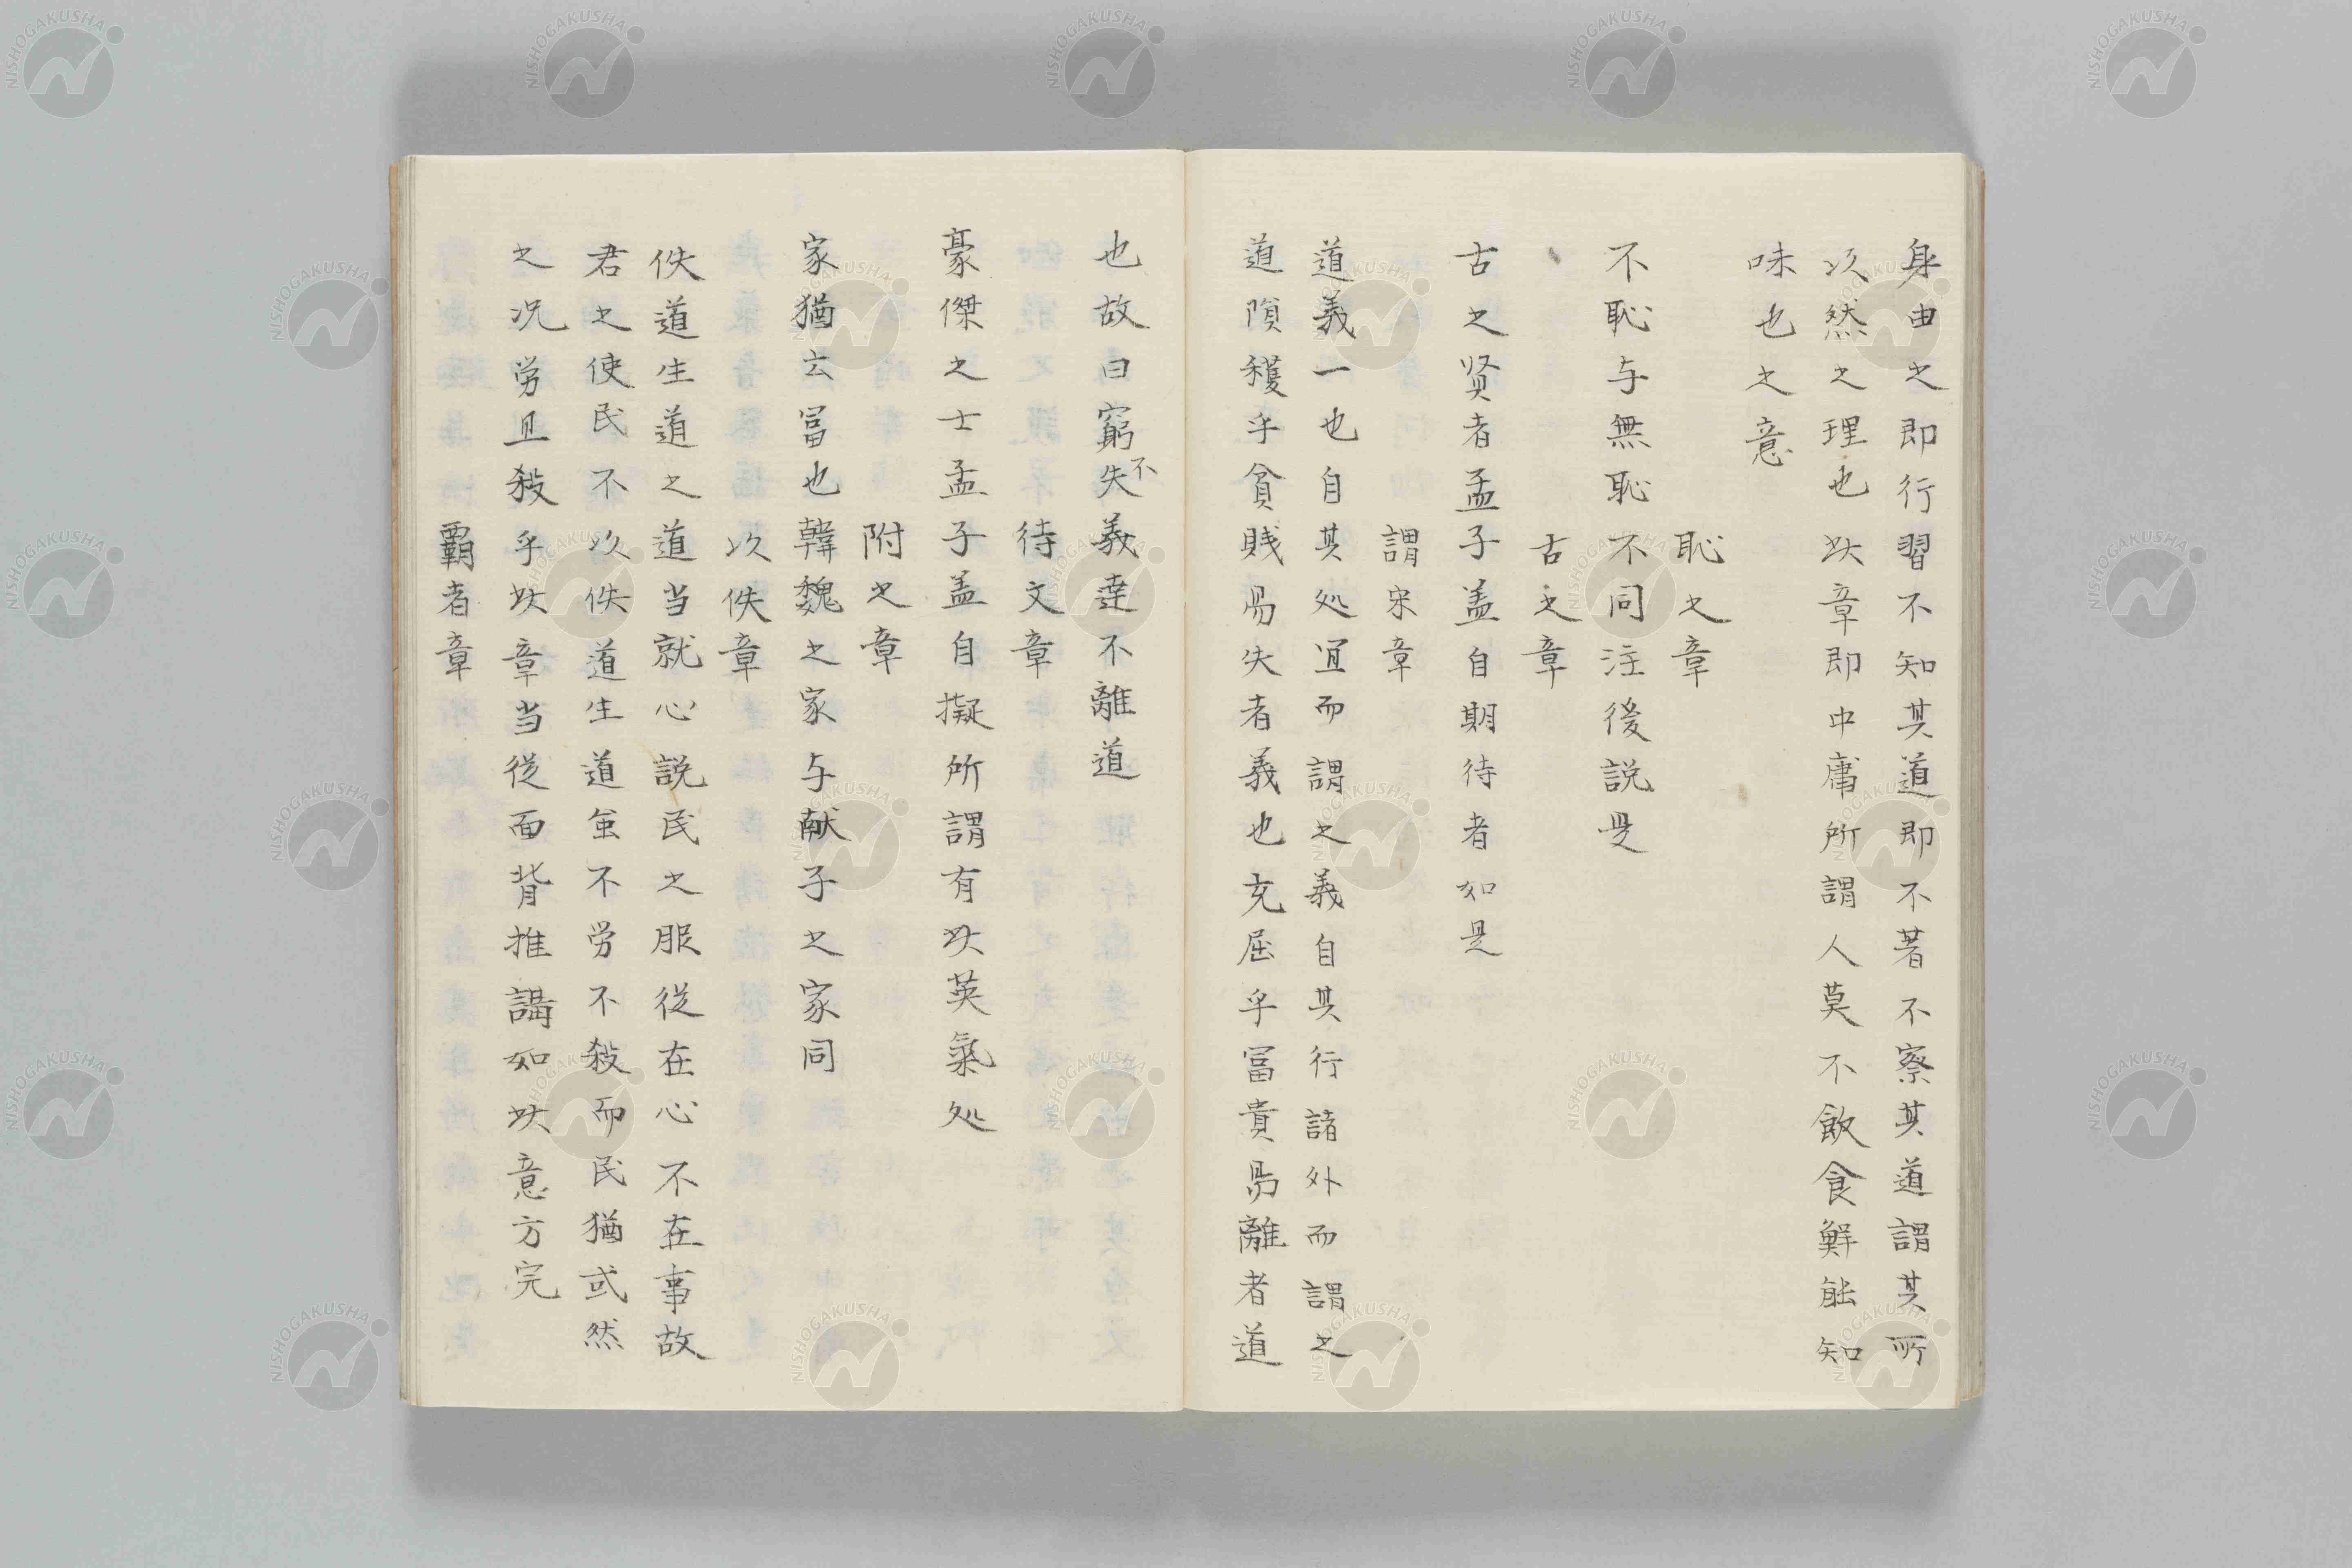 身由之即行習不知其道即不著不察其道謂其所
以然之理也此章即中庸所謂人莫不飲食鮮能知
味也之意
恥之章
不恥与無恥不同注後説是
古之章
古之贤者孟子盖自期待者如是
謂宋章
道義一也自其処宜而謂之義自其行諸外而謂之
道隕穫乎貧賎易失者義也充屈乎冨貴易離者道
也故曰窮不失義達不離道
待文章
豪傑之士孟子盖自擬所謂有此英氣処
附之章
家猶云冨也韓魏之家与献子之家同
以佚章
佚道生道之道当就心説民之服従在心不在事故
君之使民不以佚道生道虽不労不殺而民猶或然
之况労且殺乎此章当従面背推講如此意方完
覇者章
NISHOGAKUSHA